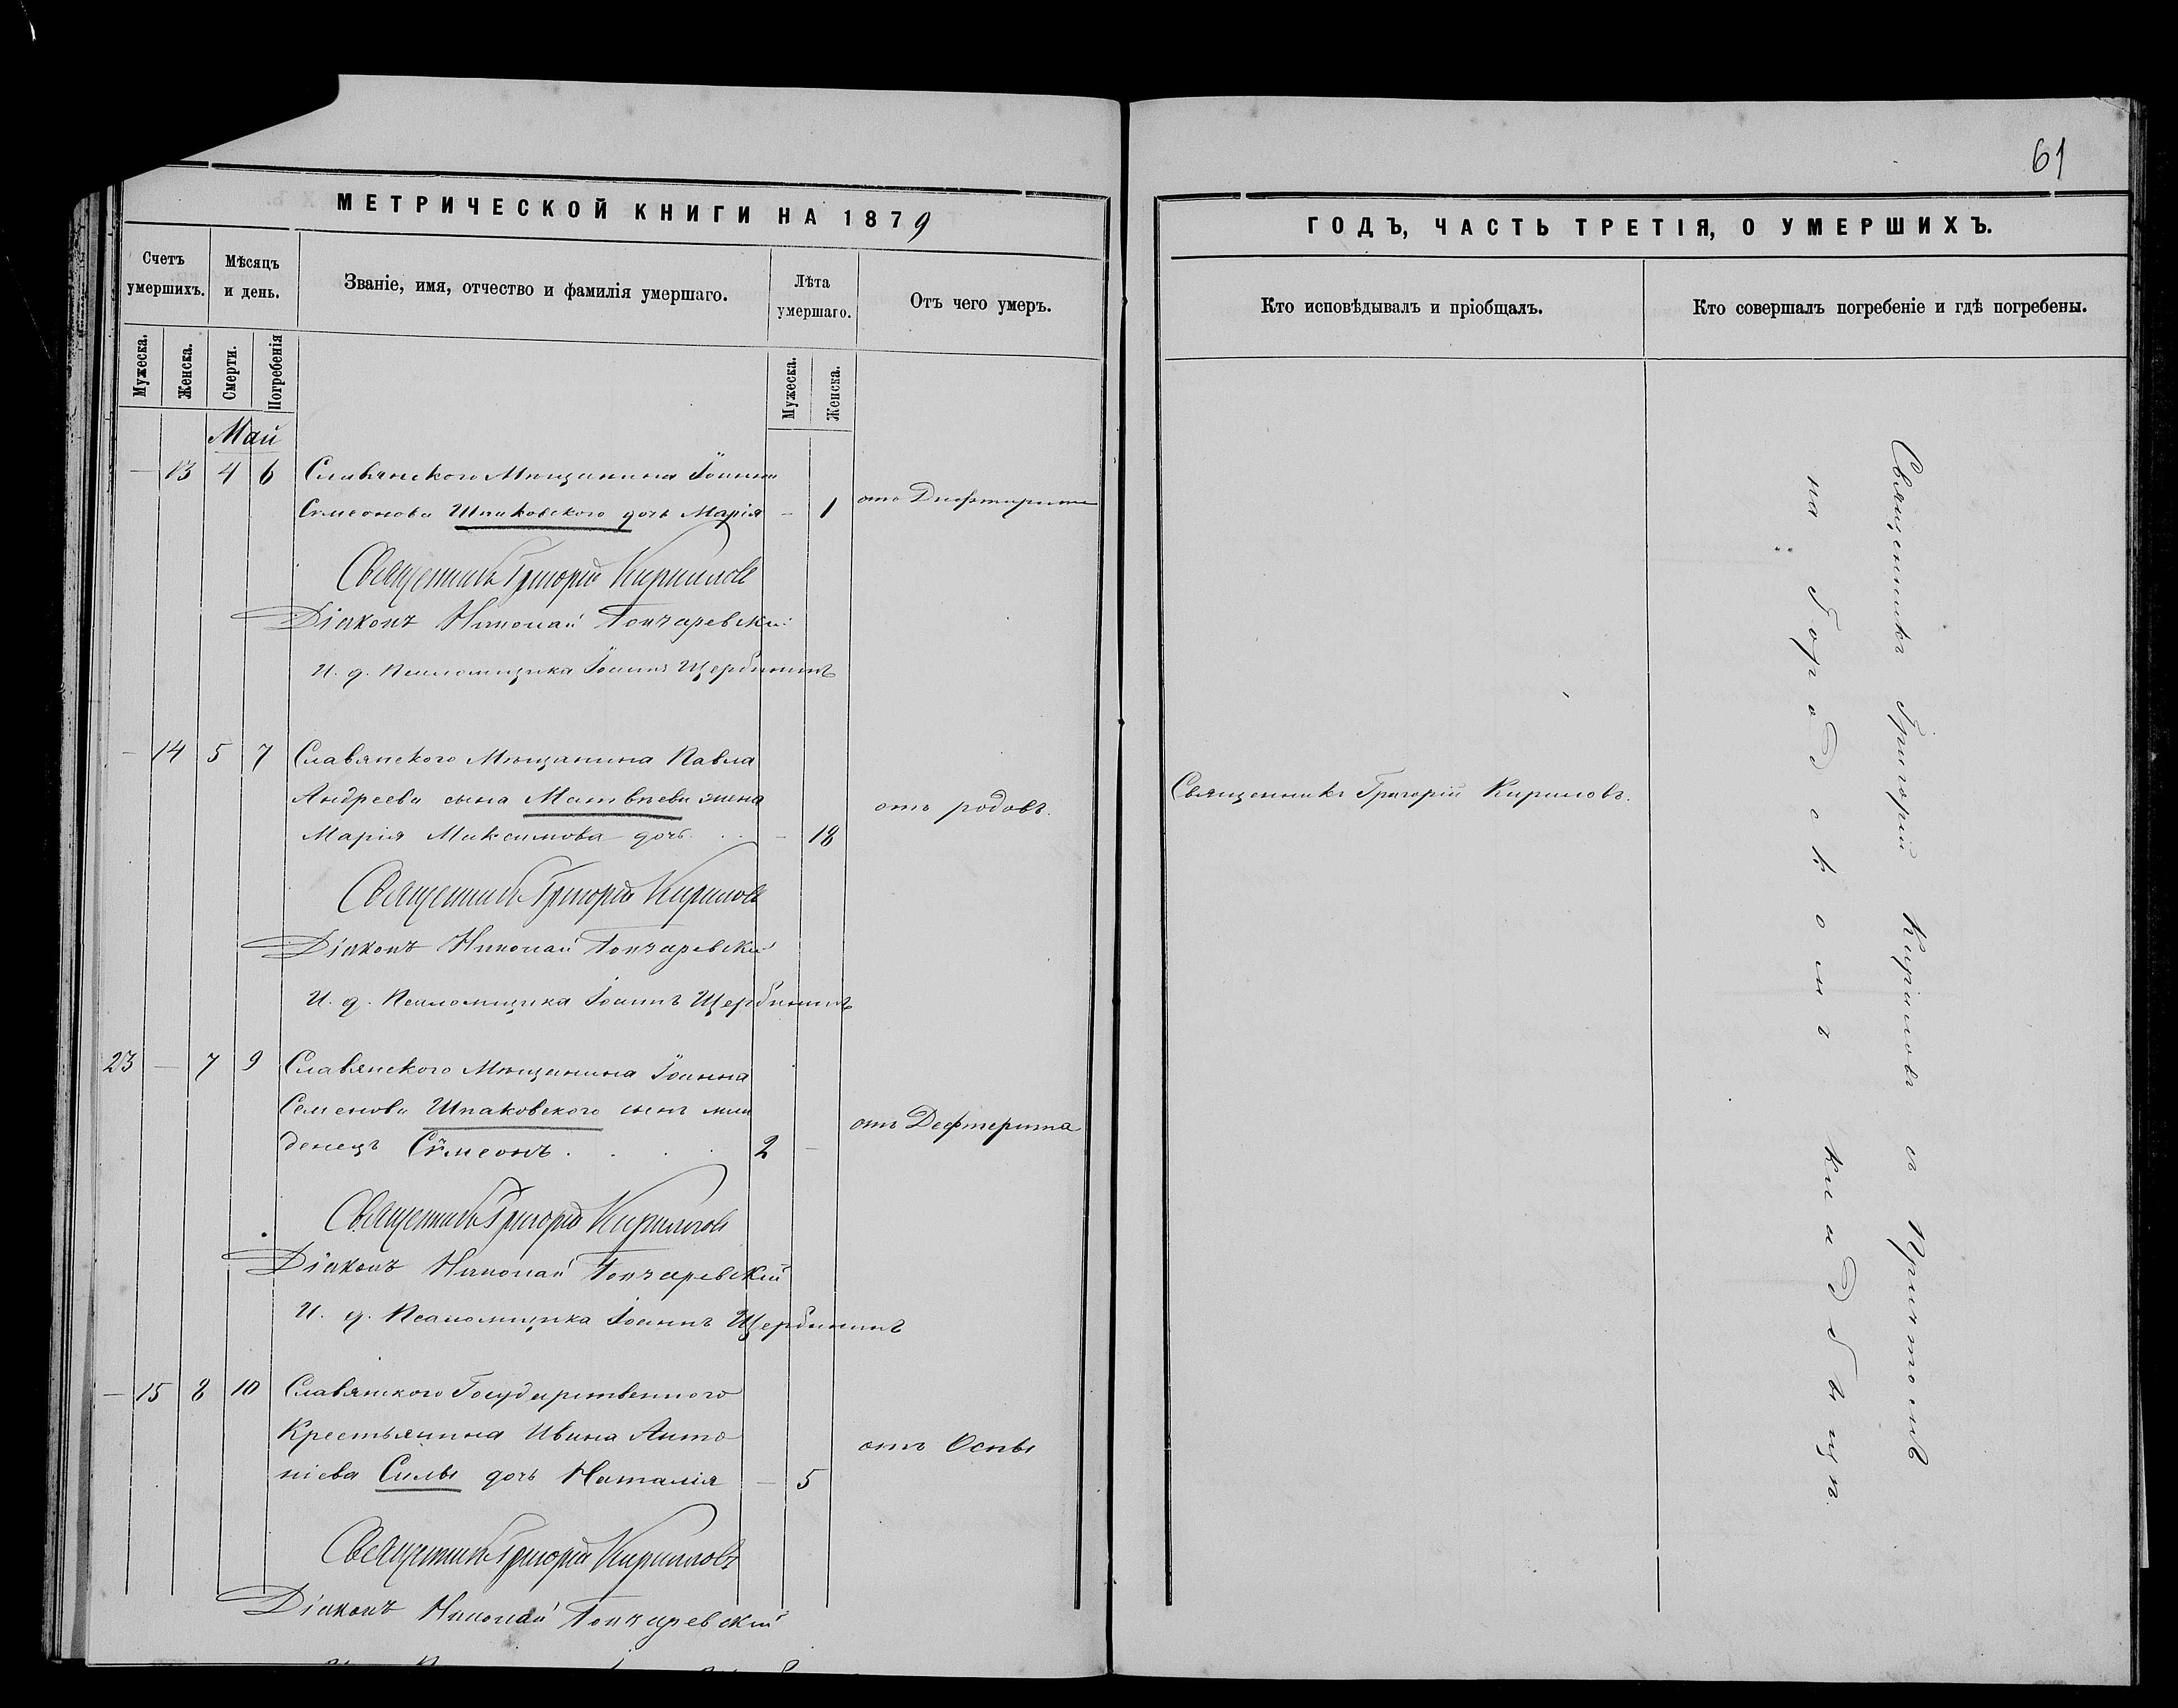 61
МЕТРИЧЕСКОЙ КНИГИ НА 1879
ГОДЪ, ЧАСТЬ ТРЕТІЯ, О УМЕРШИХЪ.
Счетъ умершихъ.
Мѣсяцъ и день.
Званіе, имя, отчество и фамилія умершаго.
Лѣта умершаго.
Отъ чего умеръ.
Кто исповѣдывалъ и пріобщалъ.
Кто совершалъ погребеніе и гдѣ погребены.
Мужеска.
Женска.
Смерти.
Погребенія
Мужеска.
Женска.
Май
— 13 4 6 Славянского Мѣщанина Іоанна
Сѵмеонова Шпаковского дочь Марія — 1 отъ Дифтерита
Священникъ Григорій Кириловъ
Діаконъ Николай Гончаревскій
И. д. Псаломщика Іоаннъ Щербининъ
— 14 5 7 Славянского Мѣщанина Павла
Андреева сына Матвѣева жена
Марія Максимова дочь. . . — 18 отъ родовъ.
Священникъ Григорій Кириловъ.
Священникъ Григорій Кириловъ
Діаконъ Николай Гончаревскій
И. д. Псаломщика Іоаннъ Щербининъ
23 — 7 9 Славянского Мѣщанина Іоанна
Семенова Шпаковского сынъ мла
денецъ Сѵмеонъ . . . . 2 — отъ Дефтерита
Священникъ Григорій Кириловъ
Діаконъ Николай Гончаревскій
И. д. Псаломщика Іоаннъ Щербининъ
— 15 8 10 Славянского Государственного
Крестьянина Ивана Анто
ніева Силы дочь Наталія — 5 отъ Оспы
Священникъ Григорій Кириловъ
Діаконъ Николай Гончаревскій
Священникъ Григорій Кириловъ съ Причтомъ
на Городскомъ кладбищѣ.